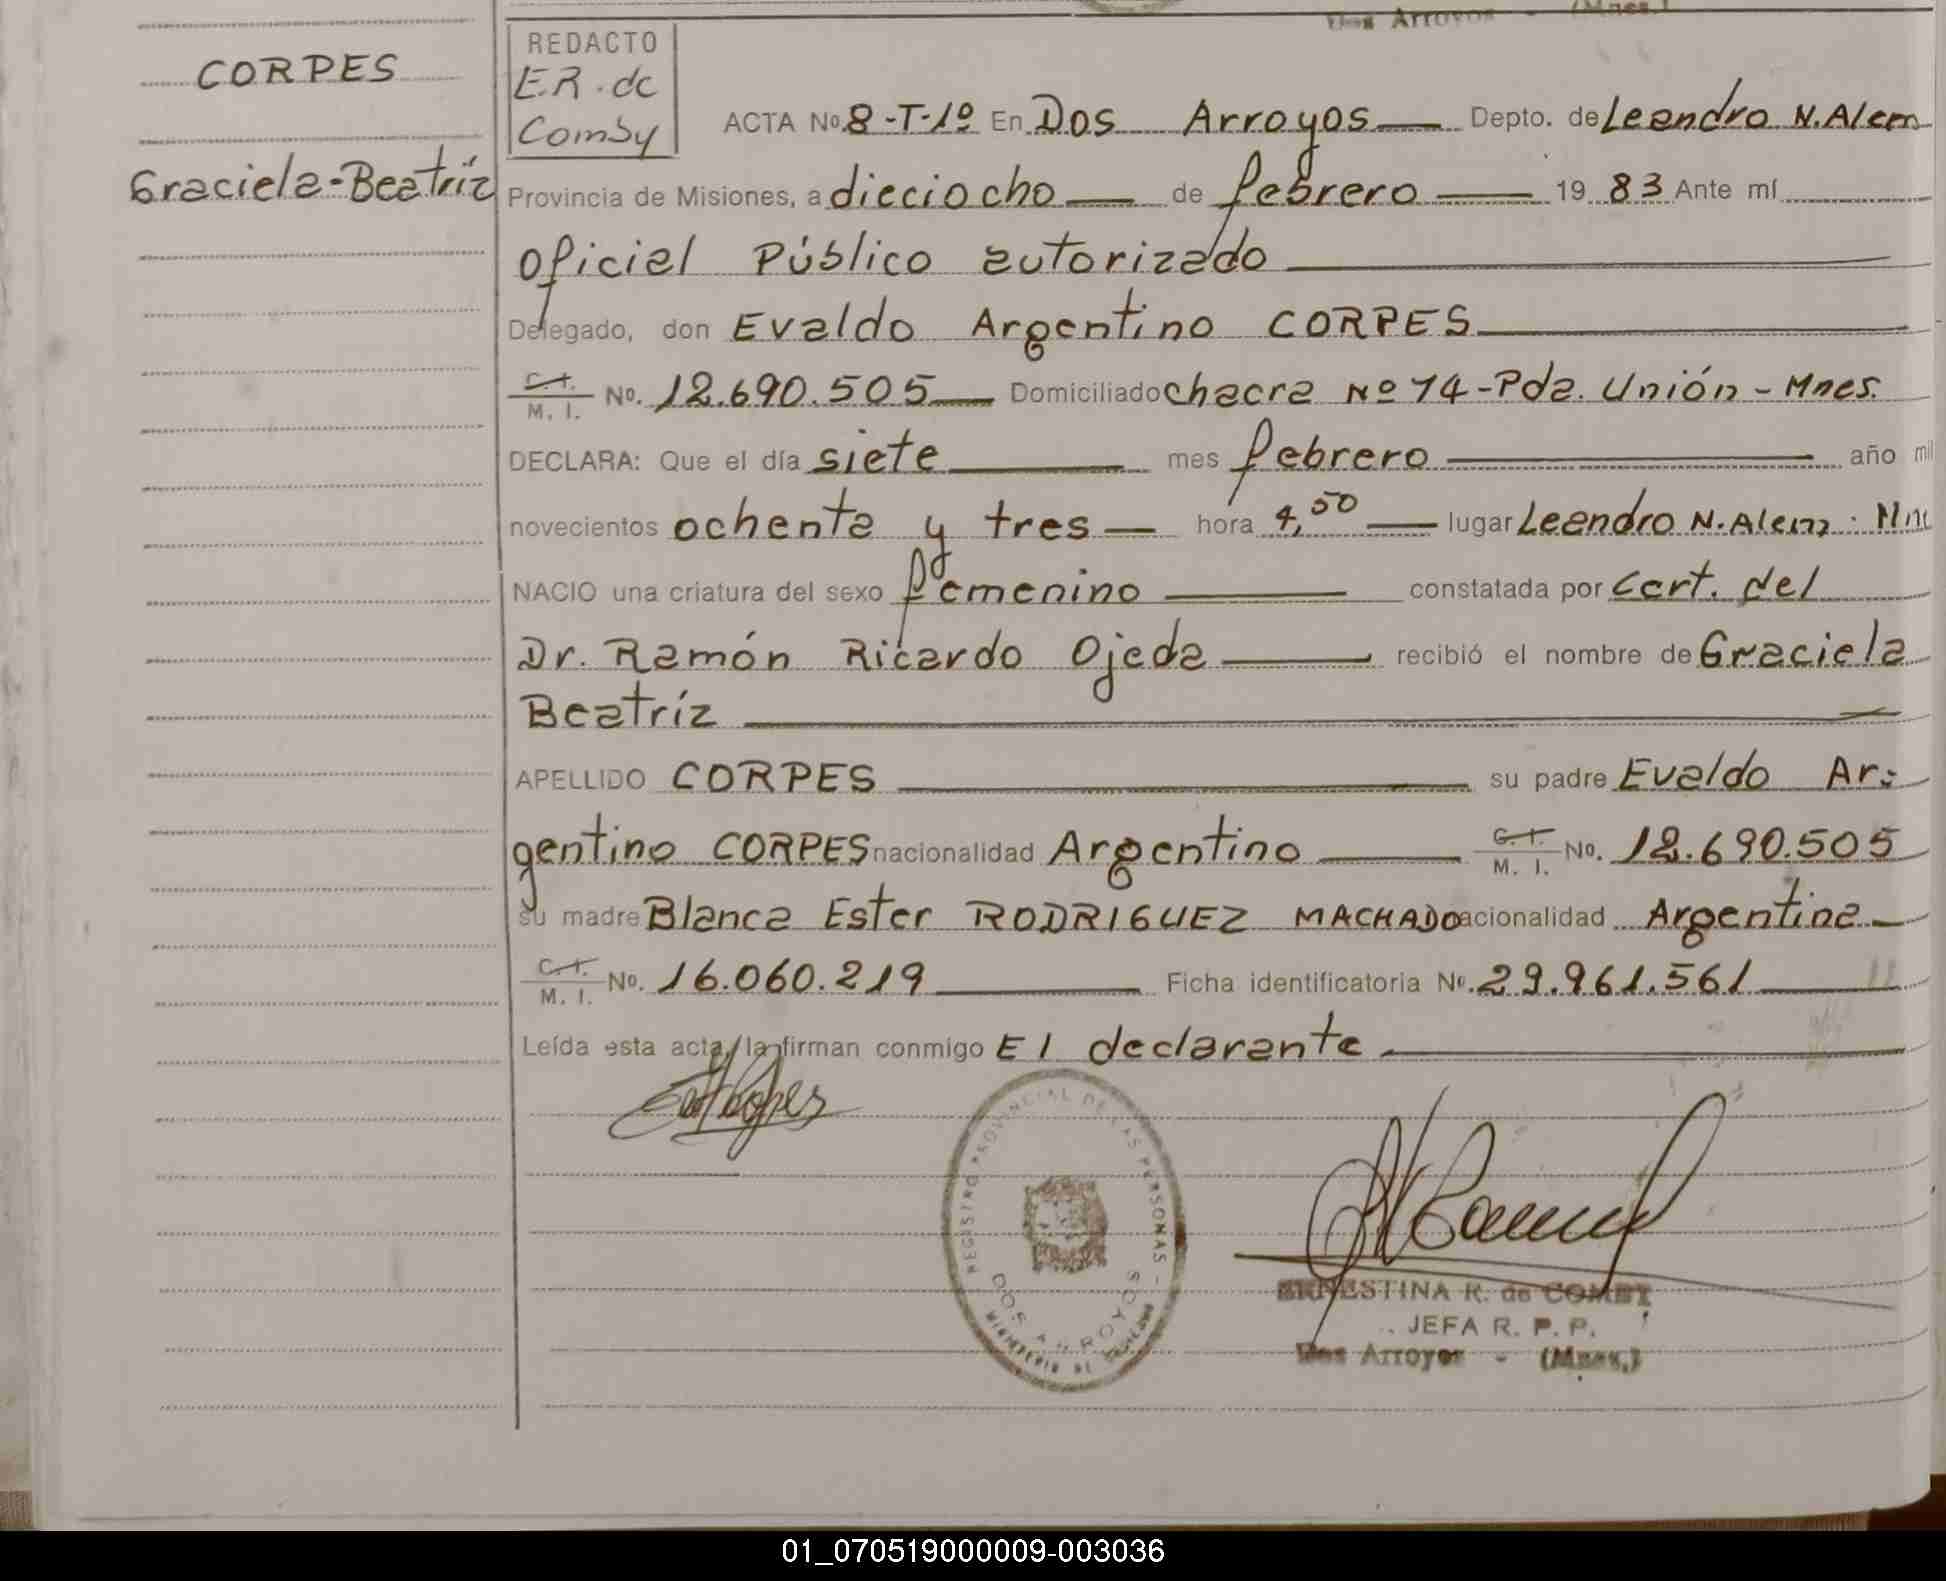 Dos Arroyos - (Mnes.)
CORPES
Graciela-Beatríz
REDACTO
E.R. de
Comby
ACTA No. 8-T-1º En Dos Arroyos Depto. de Leandro N. Alem
Provincia de Misiones, a dieciocho de febrero 19 83 Ante mí
Oficial Público autorizado
Delegado, don Evaldo Argentino CORPES
C.I. M. I. No. 12.690.505 Domiciliado chacra Nº 74-Pda. Unión - Mnes.
DECLARA: Que el día siete mes febrero año mil
novecientos ochenta y tres hora 4,50 lugar Leandro N. Alem
NACIO una criatura del sexo femenino constatada por Cert. del
Dr. Ramón Ricardo Ojeda recibió el nombre de Graciela
Beatríz
APELLIDO CORPES su padre Evaldo Ar-
gentino CORPES nacionalidad Argentino C.I. M. I. No. 12.690.505
su madre Blanca Ester RODRIGUEZ MACHADO nacionalidad Argentina
C.I. M. I. No. 16.060.219 Ficha identificatoria No. 29.961.561
Leída esta acta, la firman conmigo El declarante
REGISTRO PROVINCIAL DE LAS PERSONAS -
DOS ARROYOS
MINISTERIO DE
ERNESTINA R. de COMBY
JEFA R. P. P.
Dos Arroyos - (Mnes.)
01_070519000009-003036